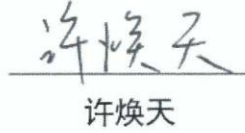 许焕天
许焕天